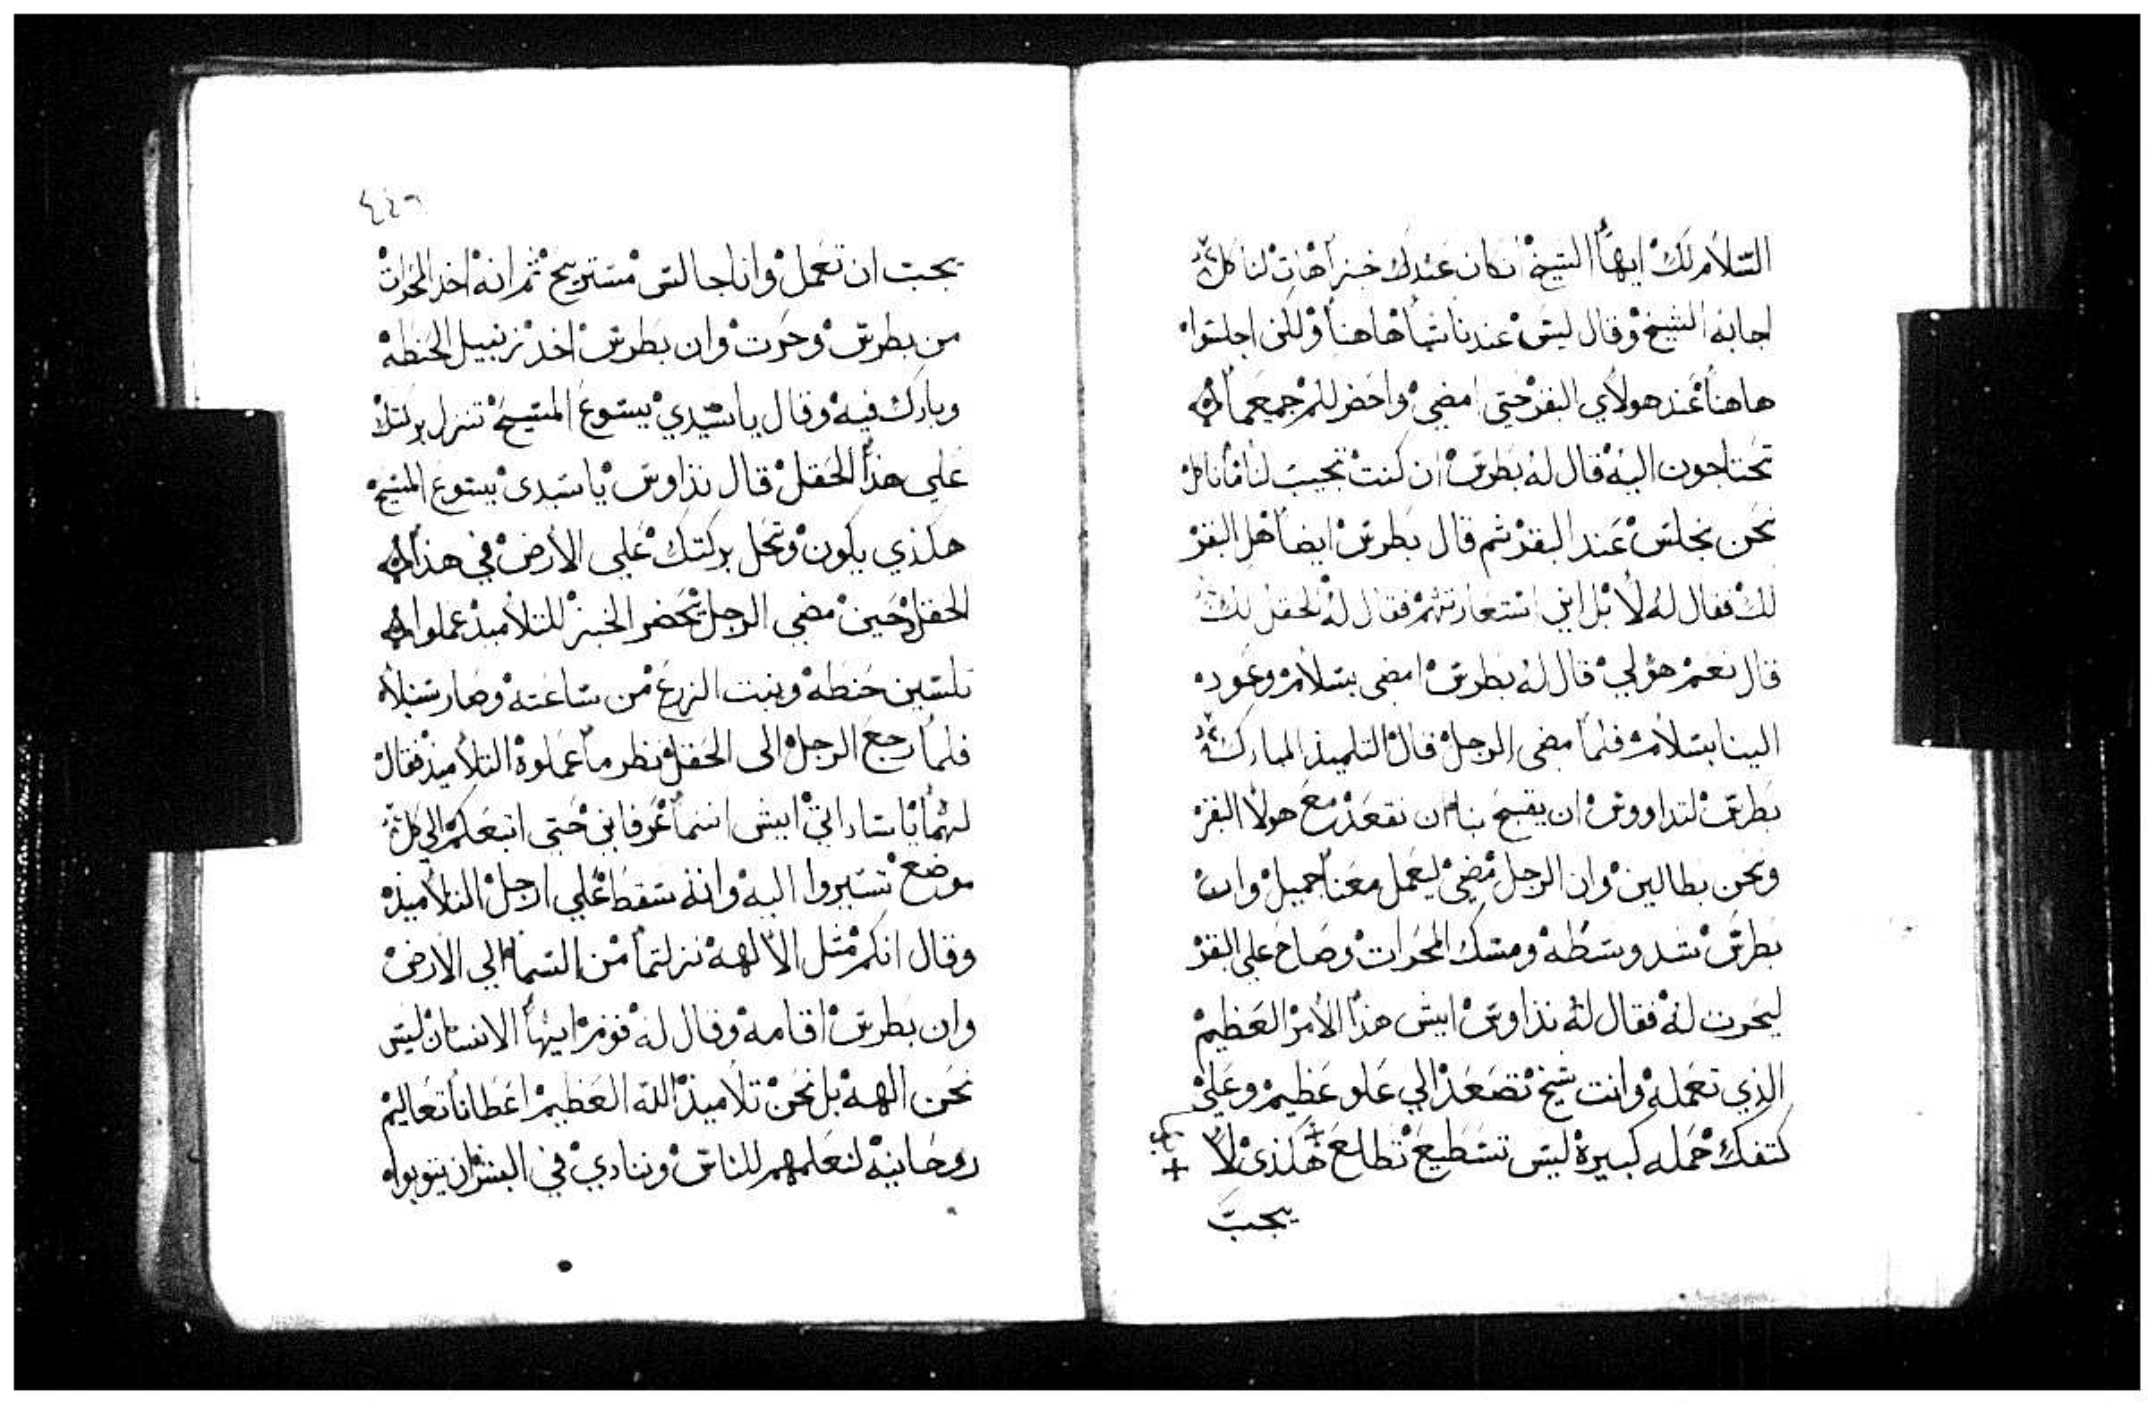 السلام لك ايها الشيخ ان كان عندك خبز اهات لنا ناكل
اجابه الشيخ وقال ليس عندنا شيا هاهنا ولكن اجلسوا
هاهنا عند هولاي البقر حتى امضي واحضر لكم جميع ما
تحتاجون اليه قال له بطرس ان كنت تجيب لنا ما ناكل
نحن نجلس عند البقر ثم قال بطرس ايضا هل البقر
لك فقال له لا بل اني استعارتهم فقال له الحقل لك
قال نعم هو لي قال له بطرس امضى بسلام وعود
الينا بسلام فلما مضى الرجل قال التلميذ المبارك
بطرس لتداووس ان يقبح بنا ان نقعد مع هولا البقر
ونحن بطالين وان الرجل مضي ليعمل معنا جميل وان
بطرس شد وسطه ومسك المحرات وصاح علي البقر
ليحرت له فقال له تداوس ايش هذا الأمر العظيم
الذي تعمله وانت شيخ تصعد الي علو عظيم وعلى
كتفك حمله كبيرة ليس تسطيع تطلع هكذى لا
يجب
٤٤٦
يجب ان تعمل وانا جالس مستريح ثم انه اخد المحرات
من بطرس وحرت وان بطرس اخد زنبيل الحنطه
وبارك فيه وقال يا سيدي يسوع المسيح تنزل بركتك
على هذا الحقل قال تداوس يا سيدى يسوع المسيح
هكذي يكون وتحل بركتك علي الأرض في هذا
الحقل وحين مضي الرجل يحضر الخبز للتلاميذ عملوا
تلسين حنطه ونبت الزرع من ساعته وصار سنبلا
فلما رجع الرجل الى الحقل نظر ما عملوة التلاميذ فقال
لهما يا ساداتي ايش انتما عرفاني حتي اتبعكم الي كل
موضع تسيروا اليه وانه سقط علي ارجل التلاميذ
وقال انكم مثل الالهه نزلتما من السما الي الارض
وان بطرس اقامه وقال له قوم ايها الانسان ليس
نحن الهه بل نحن تلاميذ الله العظيم اعطانا تعاليم
روحانيه لنعلمهم للناس وننادي في البشر ان يتوبوا